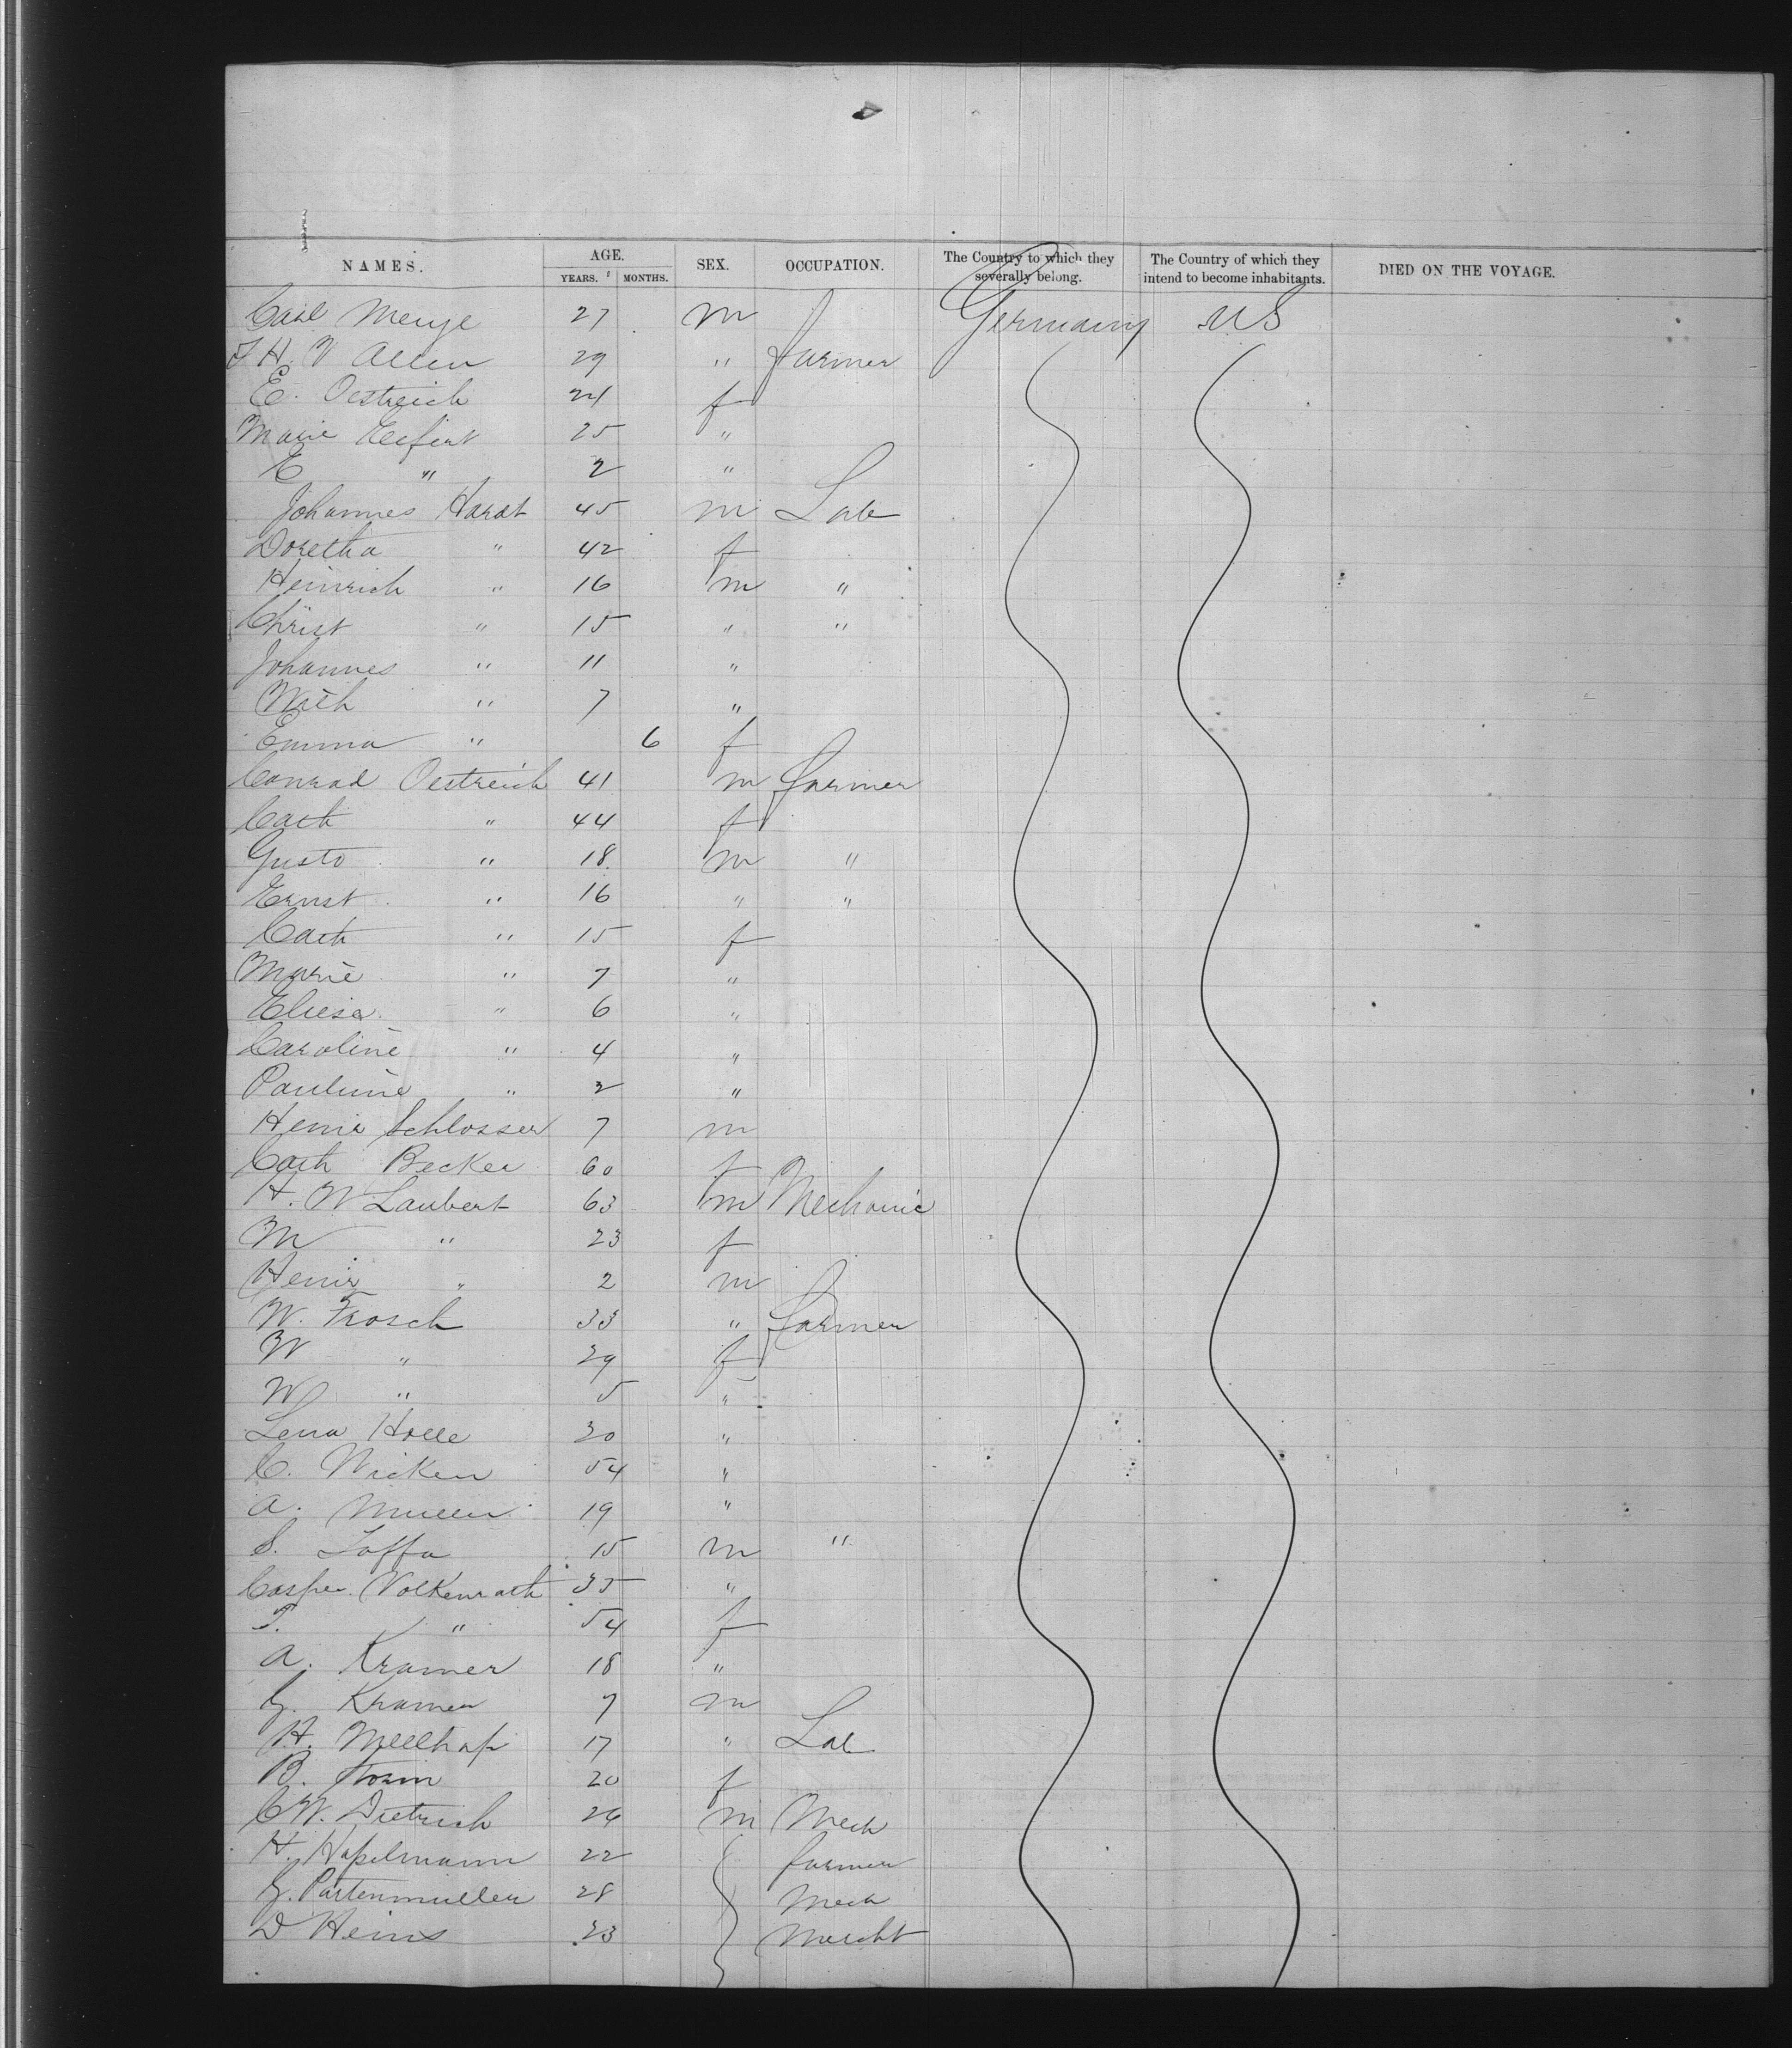 NAMES. AGE. YEARS. MONTHS. SEX. OCCUPATION. The Country to which they severally belong. The Country of which they intend to become inhabitants. DIED ON THE VOYAGE.
Carl Menge 27 m Germany US
J H. V Allen 29 " farmer
E. Oestreich 24 f
Marie 25 "
E " 2 "
Johannes Hardt 45 m Lab
Doretha " 42 f
Heinrich " 16 m "
Christ " 15 " "
Johannes " 11 "
Wilh " 7 "
Emma " 6 f
Conrad Oestreich 41 m farmer
Cath " 44 f
Gusto " 18 m "
Ernst " 16 " "
Cath " 15 f
Marie " 7 "
Eliesa " 6 "
Caroline " 4 "
Pauline " 2 "
Henri Schlosser 7 m
Cath Becker 60 f
H. W Laubert 63 m Mechanic
M " 23 f
Henir " 2 m
W. Frosch 33 " farmer
W " 29 f
W " 5 "
Lena Holle 20 "
C. Wicken 54 "
A. Muller 19 "
S. Joffa 15 m "
Casper Volkenrath 35 "
T. " 54 f
A. Kramer 18 "
G. Kramer 7 m
H. 17 " Lab
B. 20 f
C W. Dietrich 26 m Mech
H. Hapelmann 22 farmer
G. Partenmuller 28 Mech
D Heins 23 Mercht